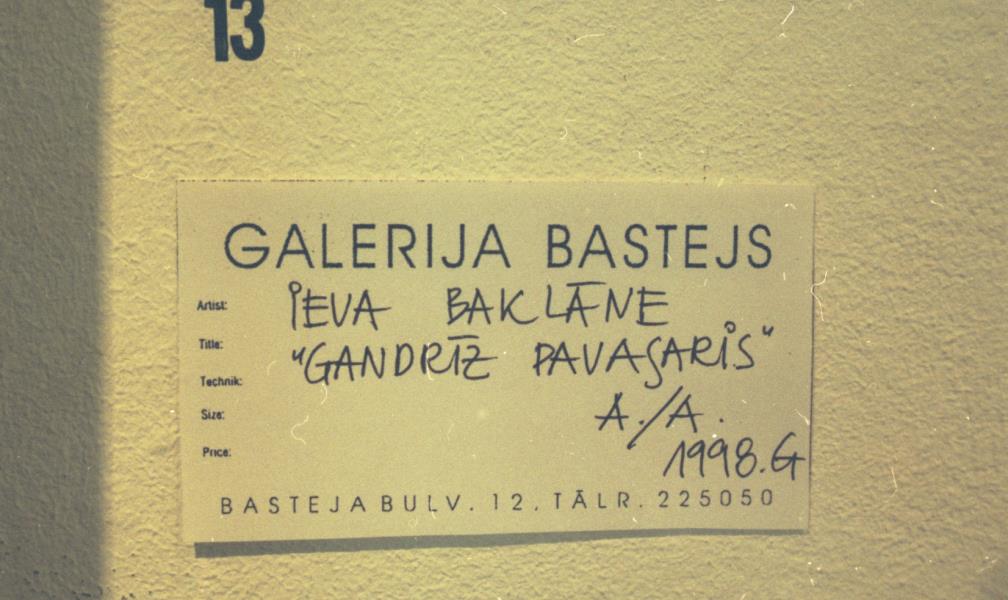 13
GALERIJA BASTEJS
Artist: IEVA BAKLĀNE
Title: "GANDRĪZ PAVASARIS"
Technik: A./A.
Size:
Price: 1998.G
BASTEJA BULV. 12, TĀLR. 225050